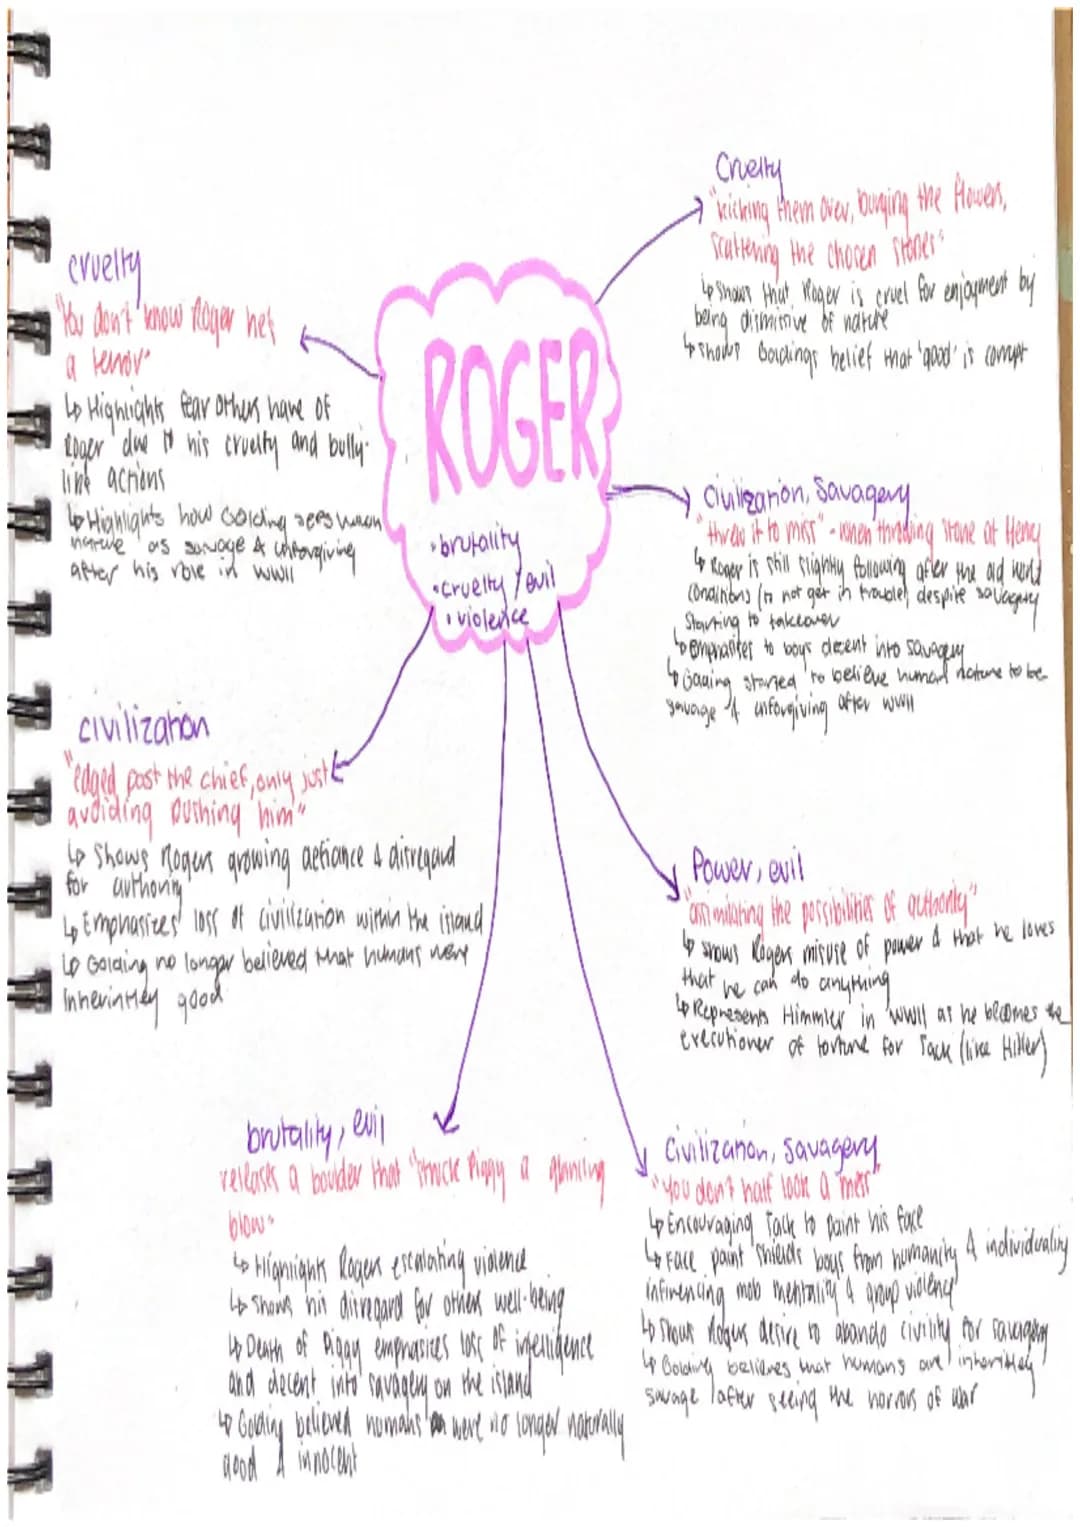 ROGER
•brutality
•cruelty / evil
•violence
Cruelty
"kicking them over, burying the flowers,
scattering the chosen stones"
↳ shows that Roger is cruel for enjoyment by
being dismissive of nature
↳ shows Goldings belief that 'good' is corrupt
Civilization, Savagery
"threw it to miss" - when throwing stone at Henry
↳ Roger is still slightly following after the old world
conditions (to not get in trouble) despite savagery
starting to takeover
↳ Emphasises to boys decent into savagery
↳ Golding started to believe human nature to be
savage & unforgiving after WWII
Power, evil
"assimilating the possibilities of authority"
↳ shows Rogers misuse of power & that he loves
that he can do anything
↳ Represents Himmler in WWII as he becomes the
executioner of torture for Jack (like Hitler)
Civilization, Savagery
"you don't half look a mess"
↳ Encouraging Jack to paint his face
↳ Face paint shields boys from humanity & individuality
infirencing mob mentality & group violence
↳ Shows Rogers desire to abando civility for savagery
↳ Golding believes that humans are inheritley
savage after seeing the horrors of war
brutality, evil
releases a boulder that "struck Piggy a glancing
blow"
↳ Highlights Rogers escalating violence
↳ Shows his disregard for others well-being
↳ Death of Piggy emphasizes loss of intelligence
and decent into savagery on the island
↳ Golding believed humans were no longer naturally
good & innocent
civilization
"edged past the chief, only just
avoiding pushing him"
↳ Shows Rogers growing defiance & disregard
for authority
↳ Emphasizes loss of civilization within the island
↳ Golding no longer believed that humans were
inherintley good
cruelty
"You don't know Roger he's
a terror"
↳ Highlights fear others have of
Roger due to his cruelty and bully-
like actions
↳ Highlights how Golding sees human
nature as savage & unforgiving
after his role in WWII